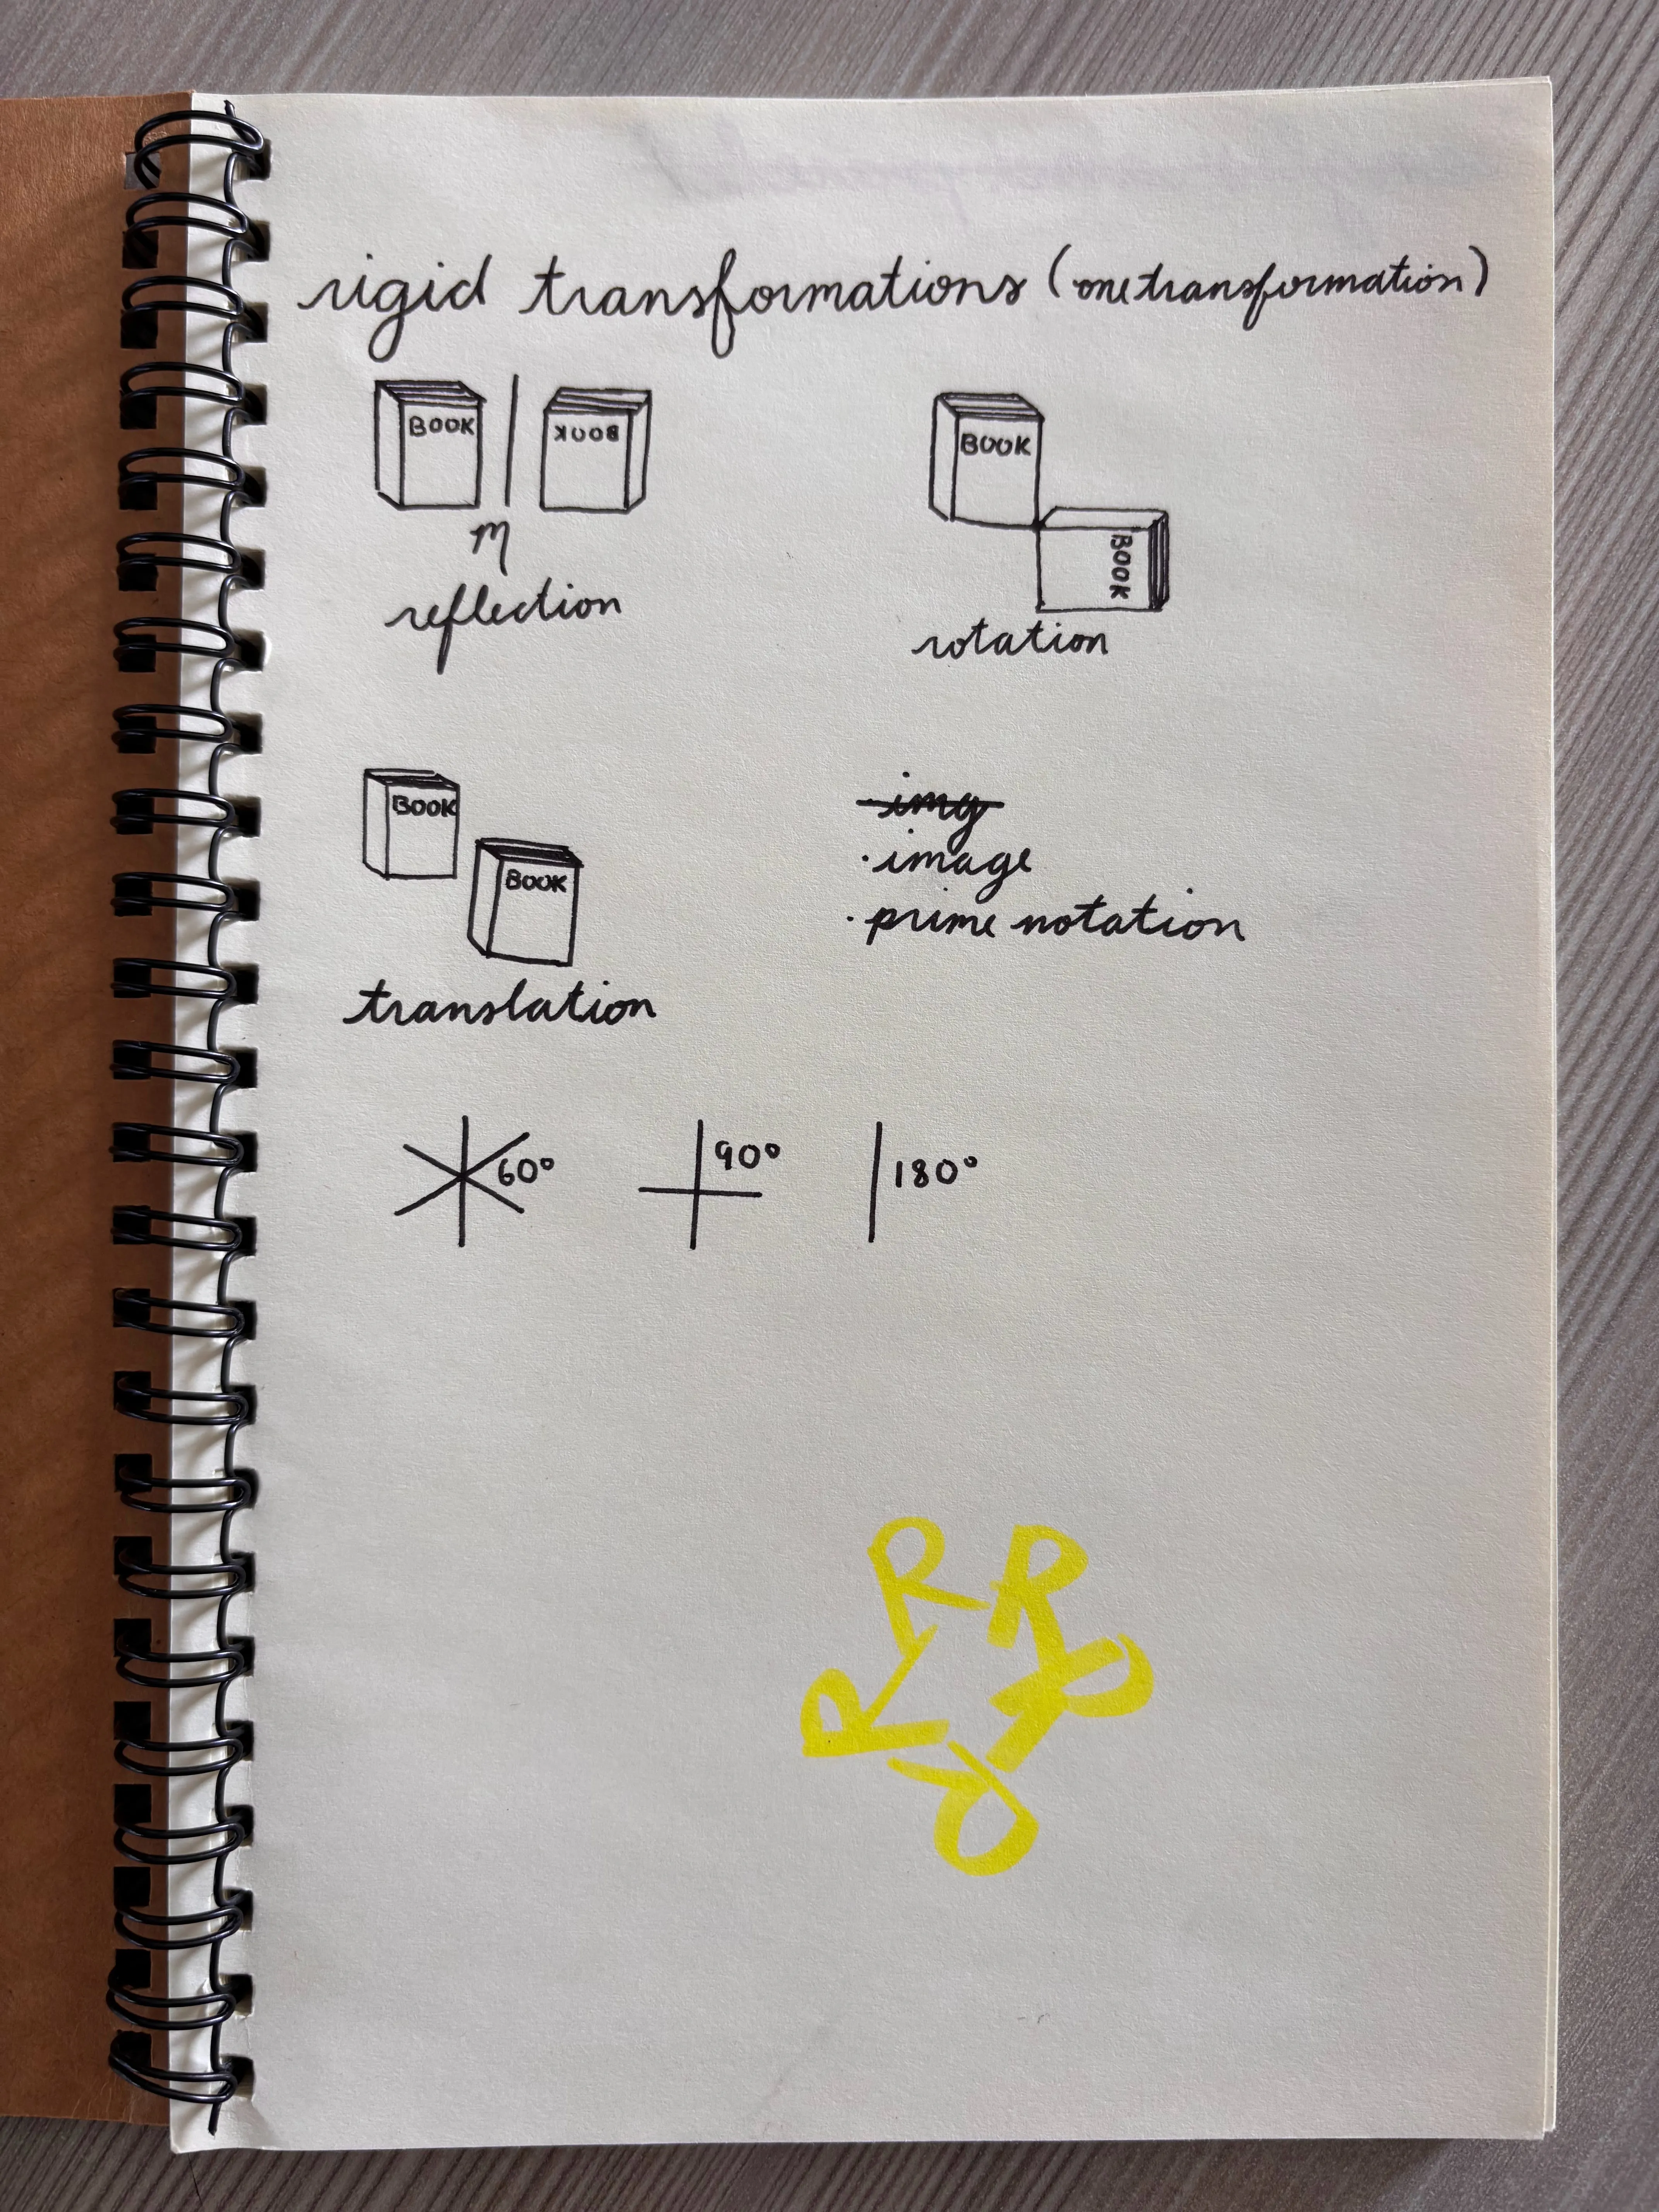 rigid transformations (one transformation)
BOOK BOOK
m
reflection
BOOK
BOOK
rotation
BOOK
BOOK
translation
img
· image
· prime notation
60° 90° 180°
R R
R R
R